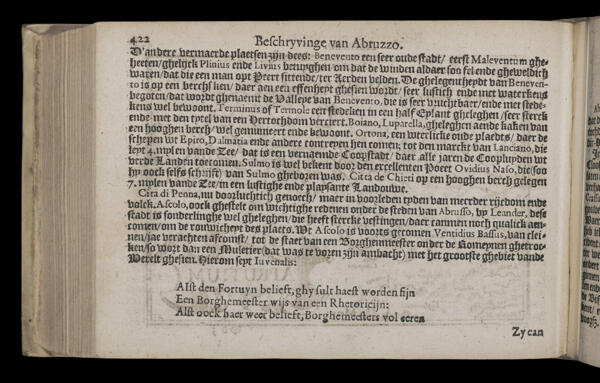 422 Beschryvinge van Abruzzo.
D'andere vermaerde plaetsen zijn dees: Benevento een seer oude stadt/ eerst Maleventum ghe-
heeten/ghelijck Plinius ende Livius betuyghen om dat de winden aldaer soo fel ende gheweldich
waren/dat die een man opt Peert sittende/ter Aerden velden. De ghelegentheydt van Beneven-
to is op een berchs ken/ daer aen een effenheyt ghesien wordt/ seer lustich ende met waterkens
begoten/dat wordt ghenaemt de Valleye van Benevento, die is seer vruchtbaer/ende met stede-
kens wel bewoont. Terminus of Termole een stedeken in een half Eylant gheleghen /seer sterck
ende met den tytel van een Hertochdom verciert. Boiano, Luparella, gheleghen aende kaken van
een hooghen berch/wel gemuniteert ende bewoont. Ortona, een heerlicke oude plaedts/ daer de
schepen wt Epiro, Dalmatia ende andere contreyen hen comen; tot den marckt van Lanciano, die
leyt 4. mylen vande Zee/ dat is een vernaemde Coopstadt/ daer alle jaren de Coopluyden wt
verde Landen toecomen. Sulmo is wel bekent door den excellenten Poeet Ovidius Naso, die (soo
hy oock selfs schrijft) van Sulmo ghebozen was. Citta de Chieti op een hooghen berch gelegen
7. mylen vande Zee/in een lustighe ende playsante Landouwe.
Cita di Penna, nu doorluchtich genoech/ maer in voorleden tyden van meerder rijcdom ende
volck. Ascolo, oock ghestelt om wichtighe redenen onder de steden van Abrusso, by Leander, dese
stadt is sonderlinghe wel gheleghen/die heeft stercke vestingen/daer rammen noch qualick aen
comen/om de rouwicheyt des plaets. Wt Ascolo is voorts gecomen Ventidius Bassus, van clei-
nen/jae verachten afcomst/ tot de staet van een Borghemeester onder de Romeynen ghetroc-
ken/soo wort dan een Muletier (dat was te voren zijn ambacht) met het grootste ghebiet vande
Werelt ghesien. Hierom seyt Iuvenalis:
Alst den Fortuyn belieft, ghy sult haest worden sijn
Een Borghemeester wijs van een Rhetoricijn:
Alst oock haer weer belieft, Borghemeesters vol eeren
Zy can